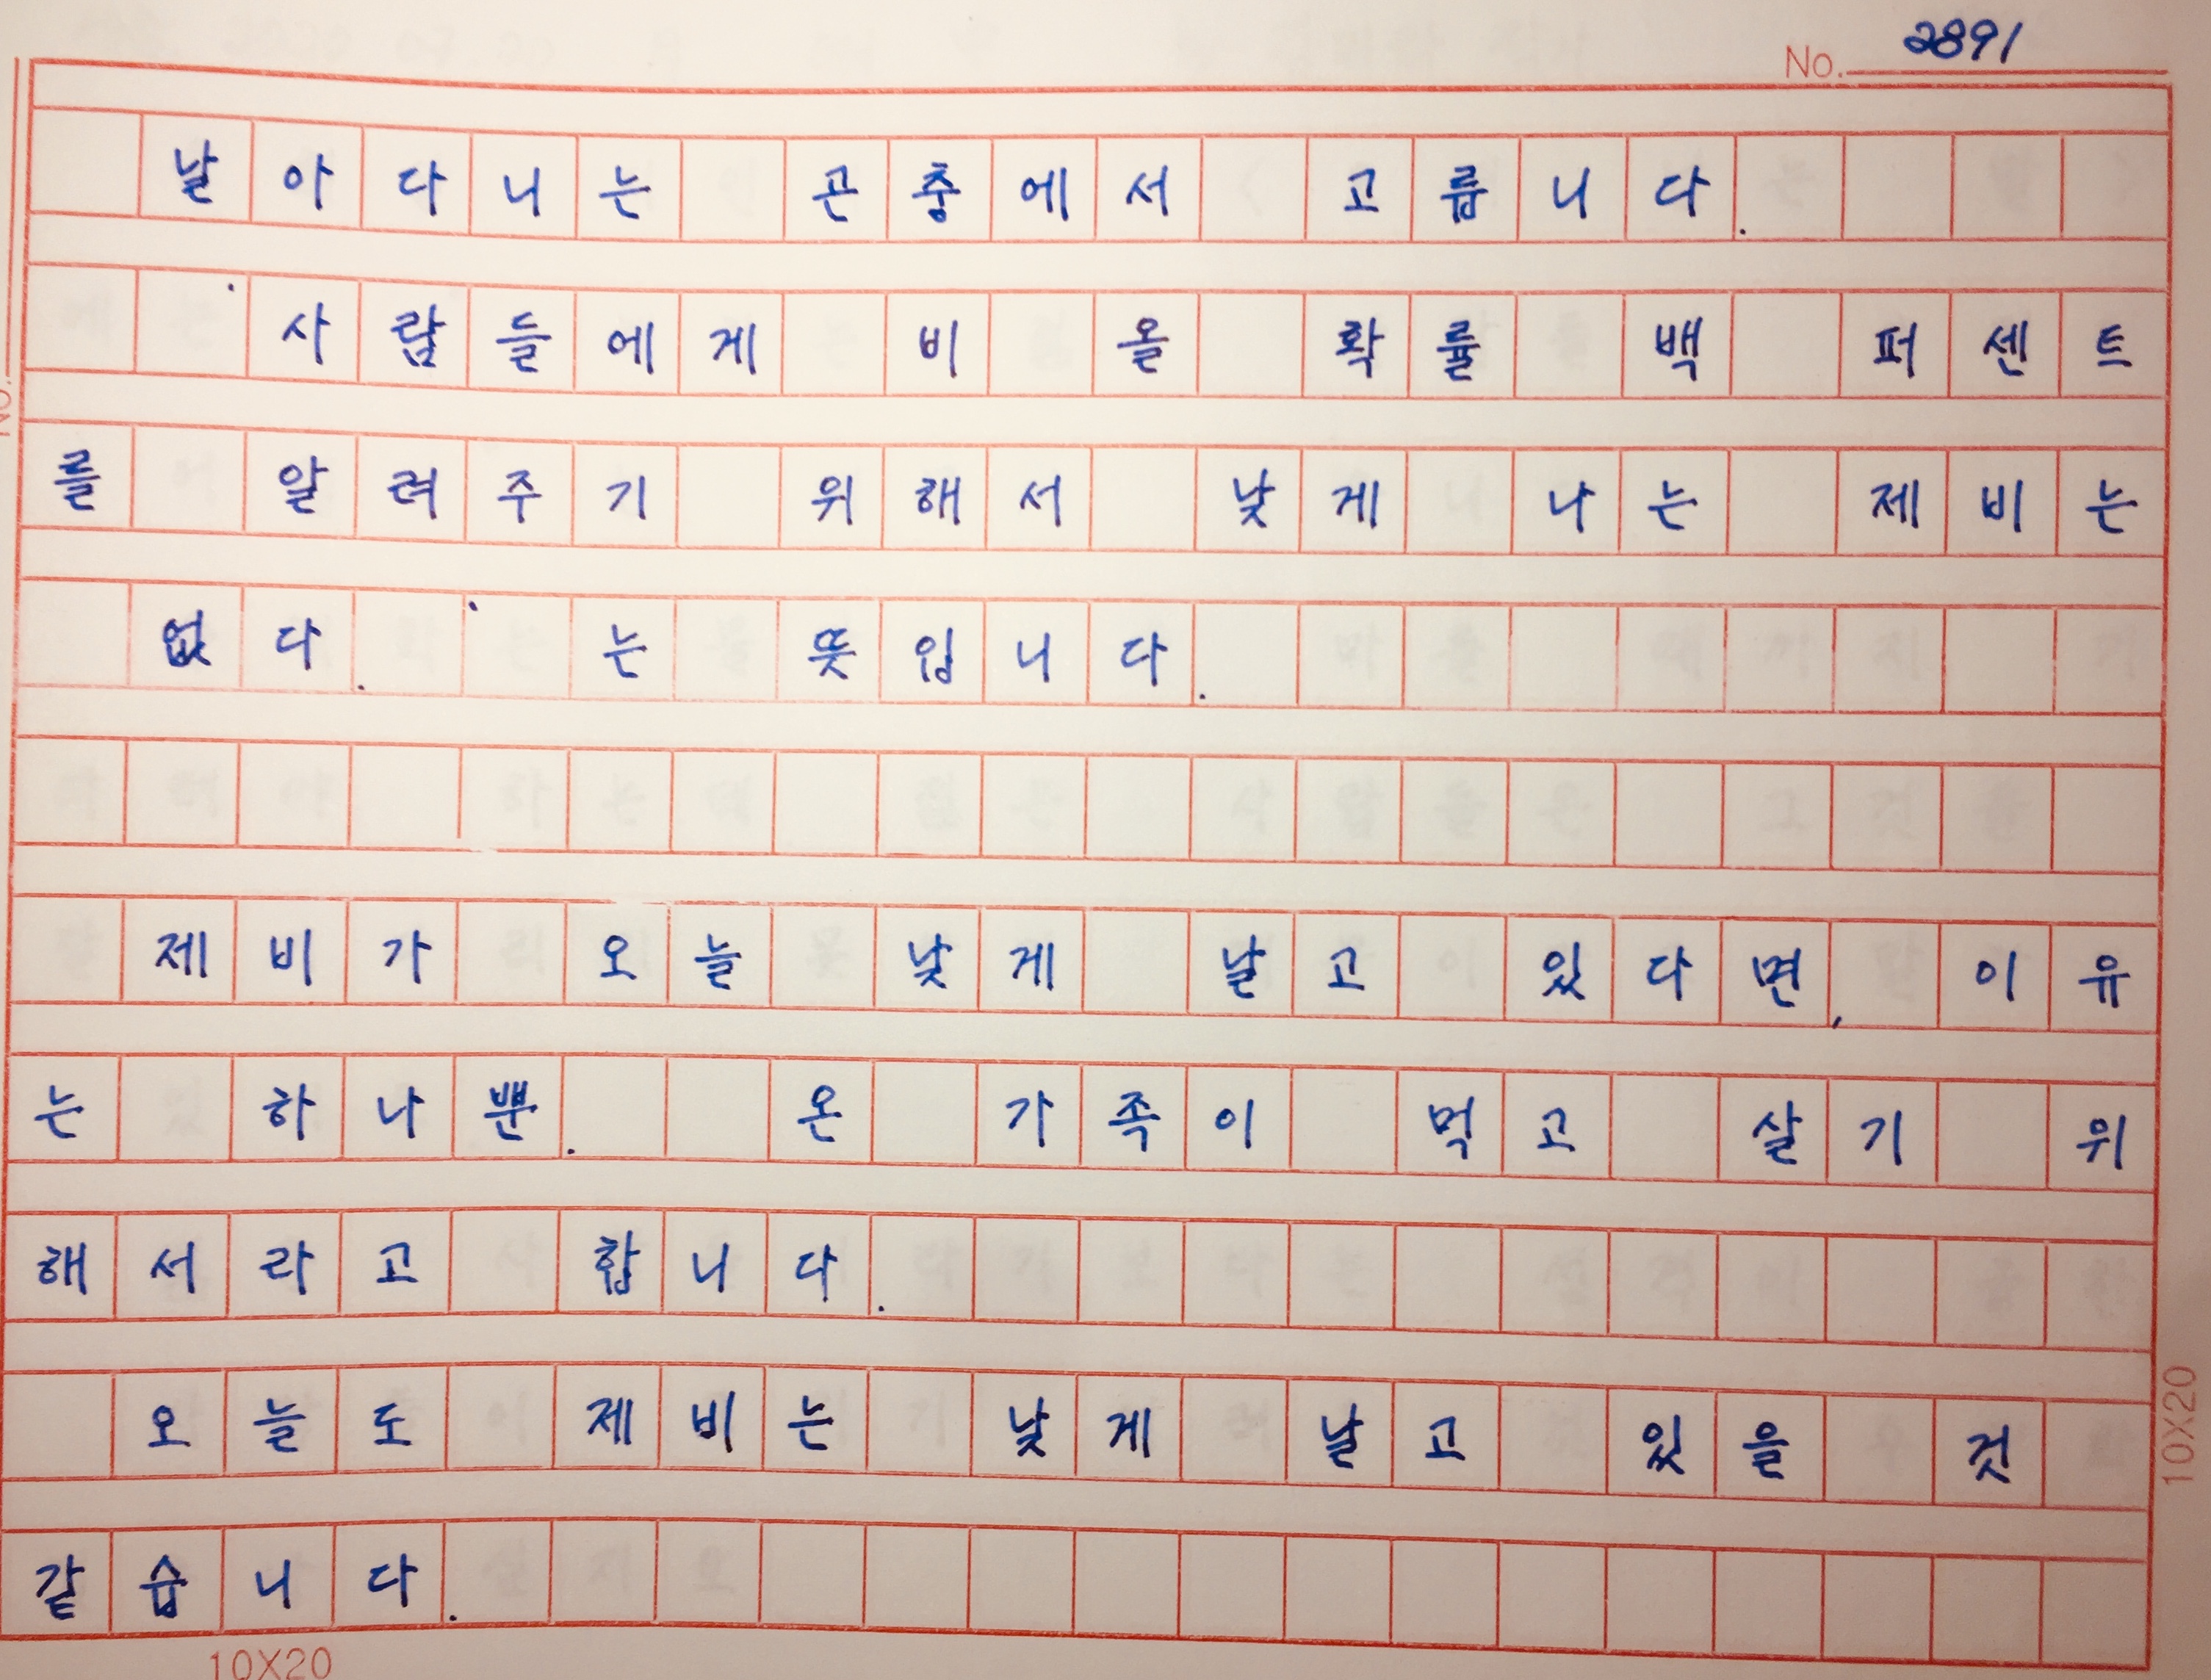 No. 2891
날아다니는 곤충에서 고릅니다.
'사람들에게 비 올 확률 백 퍼센트
를 알려주기 위해서 낮게 나는 제비는
없다.' 는 뜻입니다.
제비가 오늘 낮게 날고 있다면, 이유
는 하나뿐. 온 가족이 먹고 살기 위
해서라고 합니다.
오늘도 제비는 낮게 날고 있을 것
같습니다.
10X20
10X20
No.